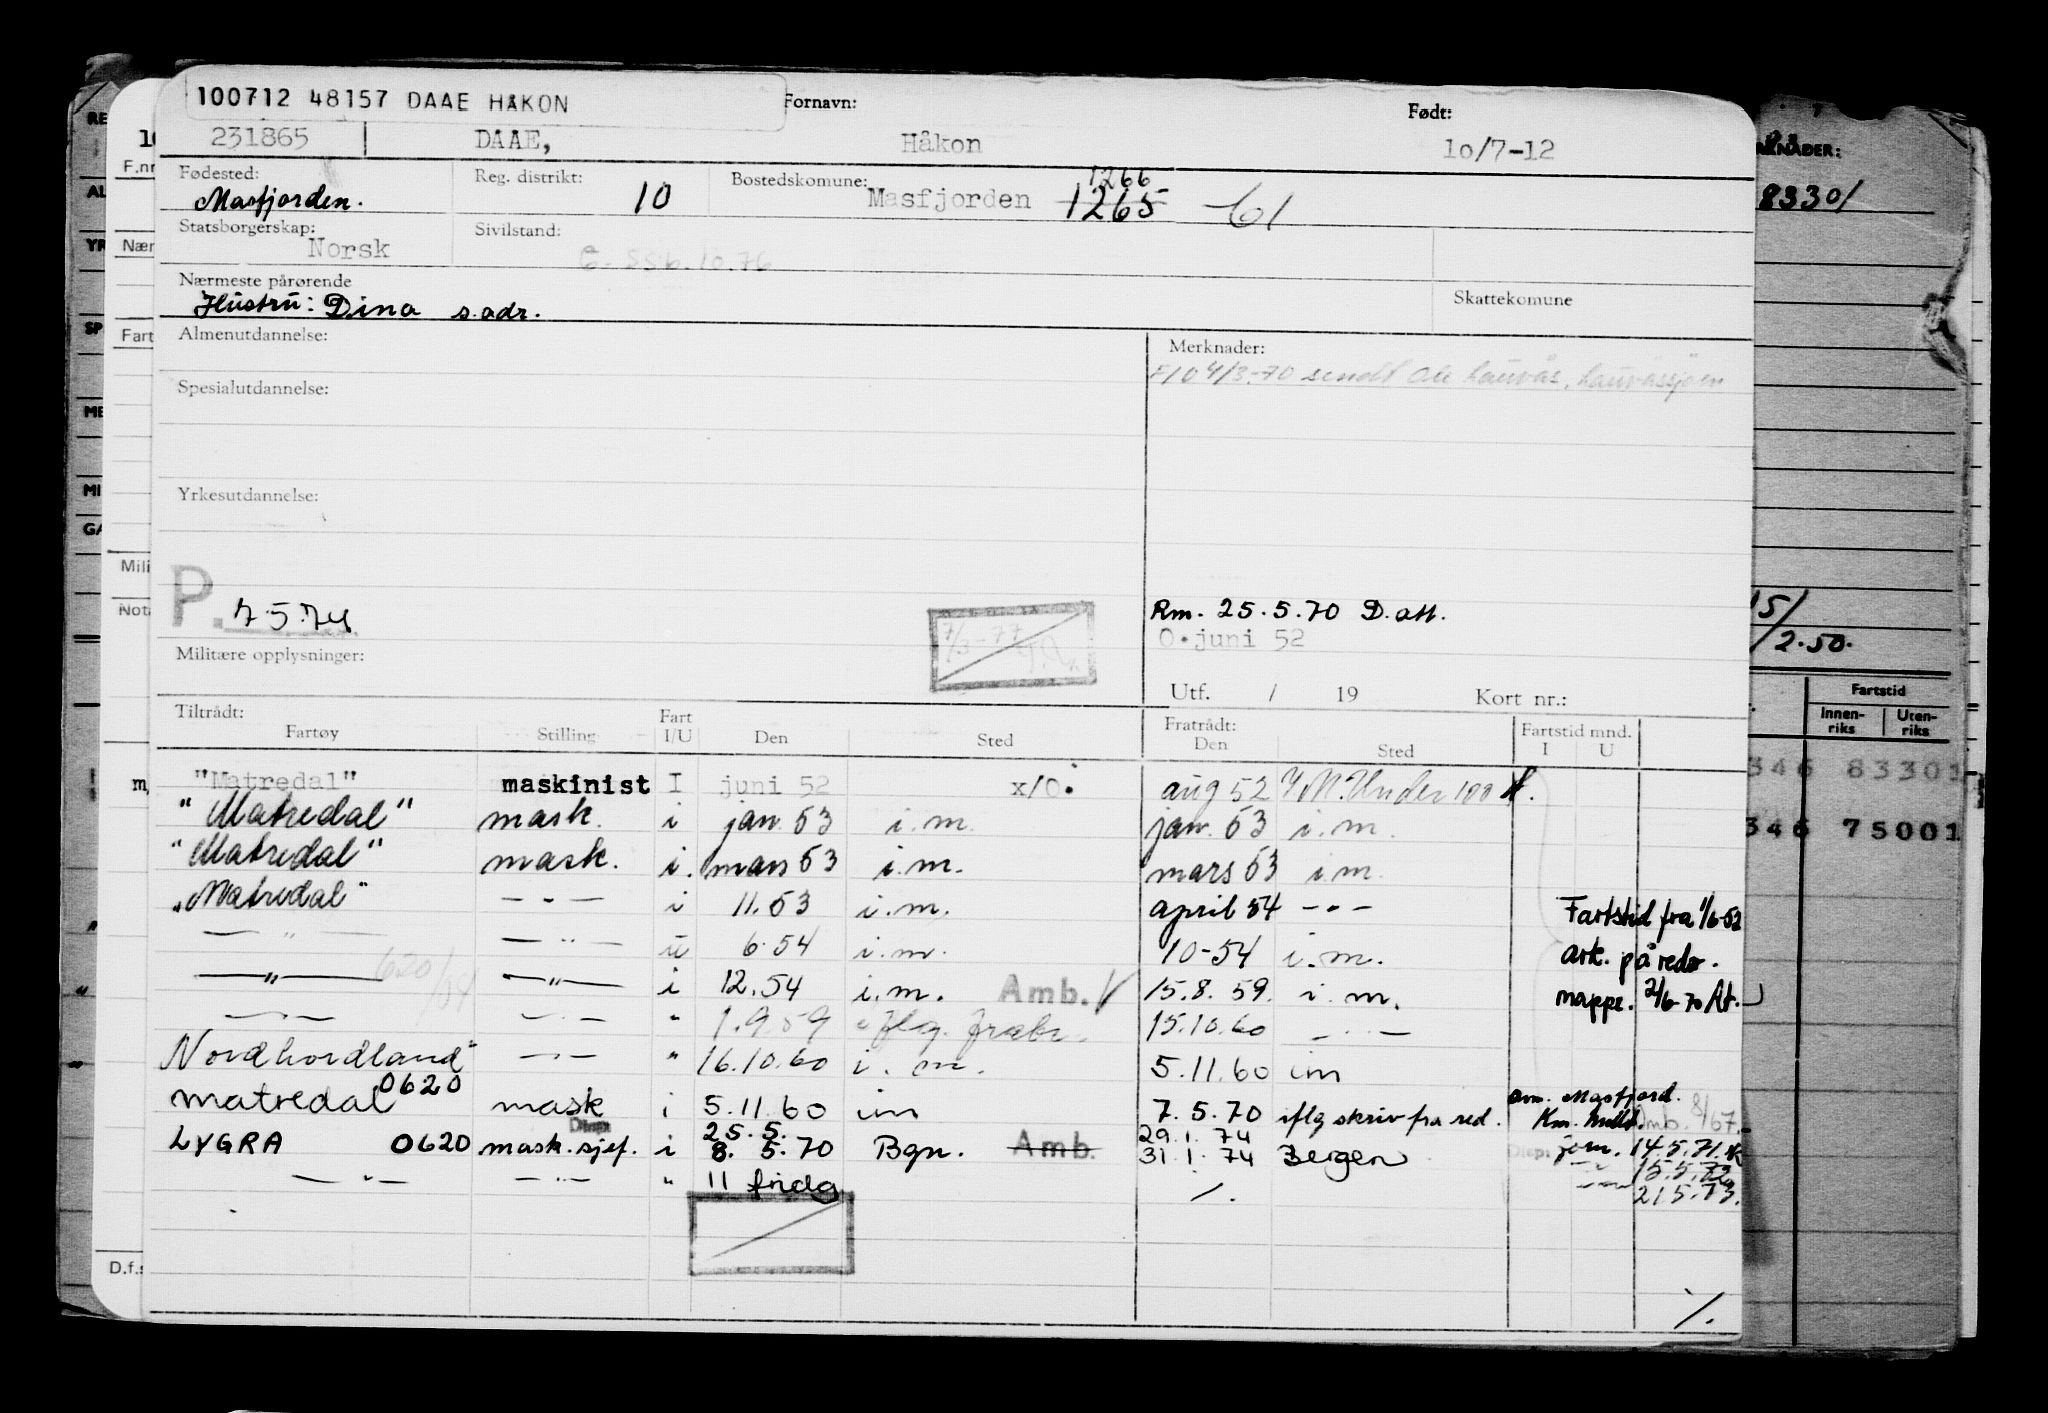 100712 48157 DAAE HÅKON
Fornavn:
Født:
231865 DAAE, Håkon 10/7-12
Fødested: Masfjorden.
Reg. distrikt: 10
Bostedskomune: Masfjorden 1265 1266
Statsborgerskap: Norsk
Sivilstand:
Nærmeste pårørende
Hustru: Dina s.adr.
Skattekomune
Almenutdannelse:
Merknader:
F10 4/3-70 sendt Ole
Spesialutdannelse:
Yrkesutdannelse:
P. 7.5.74
7/3-77
Rm. 25.5.70 D. att.
O.juni 52
Militære opplysninger:
Utf. / 19 Kort nr.:
Tiltrådt:
Fartøy Stilling Fart I/U Den Sted
Fratrådt: Den Sted Fartstid mnd. I U
"Matredal" maskinist I juni 52 x/O. aug 52 Under 100
"Matredal" mask. i jan. 53 i.m. jan. 53 i.m.
"Matredal" mask. i. mars 53 i.m. mars 53 i.m.
"Matredal" — " — i 11.53 i.m. april 54 — " —
— " — — " — u 6.54 i.m. 10-54 i.m.
— " — 620/54 — " — i 12.54 i.m. Amb. 15.8.59. i.m.
Fartstid fra 1/6-52
ark. på redr.
mappe. 2/6-70
— " — — " — " 1.9.59 iflg. 15.10.60 — " —
Nordhordland" — " — " 16.10.60 i.m. 5.11.60 im
matredal 0620 mask i 5.11.60 im 7.5.70 iflg skriv fra red.
Masfjord.
Amb. 8/67.
LYGRA 0620 mask.sjef. Disp. i 25.5. 8.5.70 Bgn. Amb. 29.1.74 31.1.74 Bergen
Disp: 14.5.71.
15.5.72
21.5.73.
— " — — " — " 11 fridg ./.
./.
F.nr
Nær
Fart
Mili
Nota
D.f.s
RE
AL
YR
SP
ME
MI
GA
MERKNADER:
83301
2.50.
Fartstid
Innen-riks Uten-riks
346 83301
346 75001